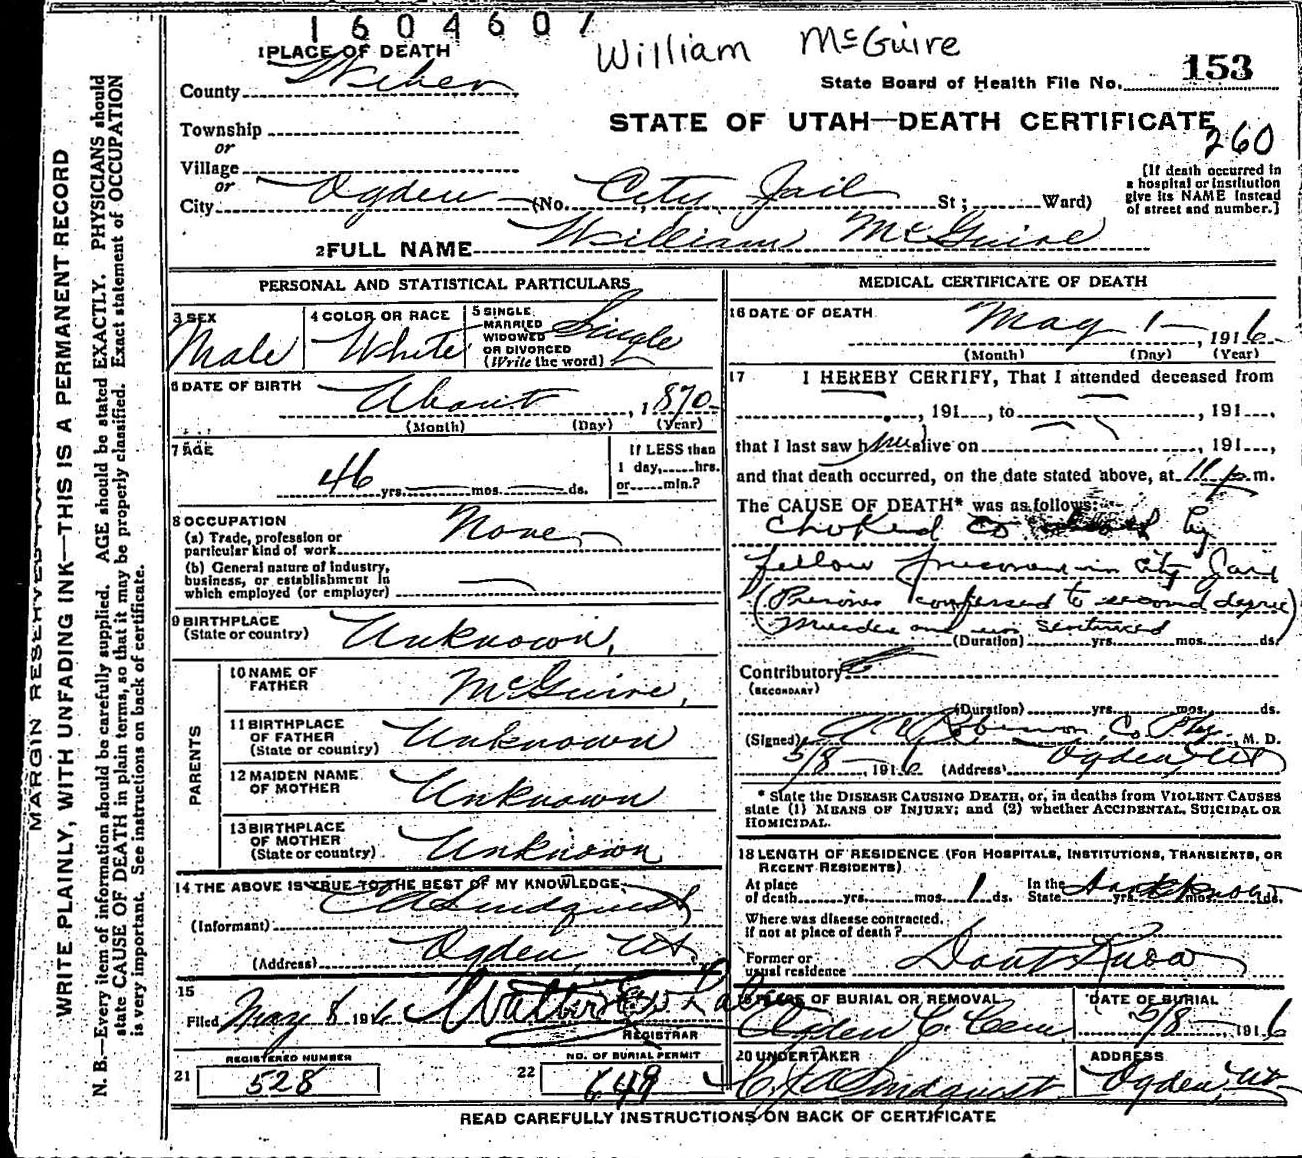 1604607
William McGuire
1 PLACE OF DEATH
County Weber
State Board of Health File No. 153
Township
or
STATE OF UTAH—DEATH CERTIFICATE
260
Village
or
City Ogden (No. City Jail St; Ward)
[If death occurred in
a hospital or institution
give its NAME instead
of street and number.]
2 FULL NAME William McGuire
PERSONAL AND STATISTICAL PARTICULARS
3 SEX
Male
4 COLOR OR RACE
White
5 SINGLE,
MARRIED
WIDOWED
OR DIVORCED
(Write the word)
Single
6 DATE OF BIRTH
About , 1870
(Month) (Day) (Year)
7 AGE
46 yrs. mos. ds.
If LESS than
1 day, hrs.
or min.?
8 OCCUPATION
(a) Trade, profession or
particular kind of work None
(b) General nature of industry,
business, or establishment in
which employed (or employer)
9 BIRTHPLACE
(State or country) Unknown,
PARENTS
10 NAME OF
FATHER McGuire,
11 BIRTHPLACE
OF FATHER
(State or country) Unknown
12 MAIDEN NAME
OF MOTHER Unknown
13 BIRTHPLACE
OF MOTHER
(State or country) Unknown
14 THE ABOVE IS TRUE TO THE BEST OF MY KNOWLEDGE,
(Informant) Lindquist
(Address) Ogden, Ut.
15
Filed May 8 1916 Walter
REGISTRAR
REGISTERED NUMBER
21 528
NO. OF BURIAL PERMIT
22 649
MEDICAL CERTIFICATE OF DEATH
16 DATE OF DEATH
May 1 , 1916
(Month) (Day) (Year)
17 I HEREBY CERTIFY, That I attended deceased from
, 191 , to , 191 ,
that I last saw him alive on , 191 ,
and that death occurred, on the date stated above, at 11 p m.
The CAUSE OF DEATH* was as follows:
Choked to by
fellow prisoner in City Jail
(Prisoner confessed to second degree)
Murder and was sentenced
(Duration) yrs. mos. ds.
Contributory
(SECONDARY)
(Duration) yrs. mos. ds.
(Signed) Robinson Co. Phy. M. D.
5/8 , 1916 (Address) Ogden, Ut
* State the DISEASE CAUSING DEATH, or, in deaths from VIOLENT CAUSES
state (1) MEANS OF INJURY; and (2) whether ACCIDENTAL, SUICIDAL OR
HOMICIDAL.
18 LENGTH OF RESIDENCE (FOR HOSPITALS, INSTITUTIONS, TRANSIENTS, OR
RECENT RESIDENTS)
At place
of death yrs. mos. 1 ds.
In the
State yrs. mos. ds.
Where was disease contracted,
If not at place of death?
Former or
usual residence Dont Know
19 PLACE OF BURIAL OR REMOVAL
Ogden C. Cem
DATE OF BURIAL
5/8 1916
20 UNDERTAKER
Lindquist
ADDRESS
Ogden, Ut
READ CAREFULLY INSTRUCTIONS ON BACK OF CERTIFICATE
MARGIN RESERVED
WRITE PLAINLY, WITH UNFADING INK—THIS IS A PERMANENT RECORD
N. B.—Every item of information should be carefully supplied. AGE should be stated EXACTLY. PHYSICIANS should
state CAUSE OF DEATH in plain terms, so that it may be properly classified. Exact statement of OCCUPATION
is very important. See instructions on back of certificate.